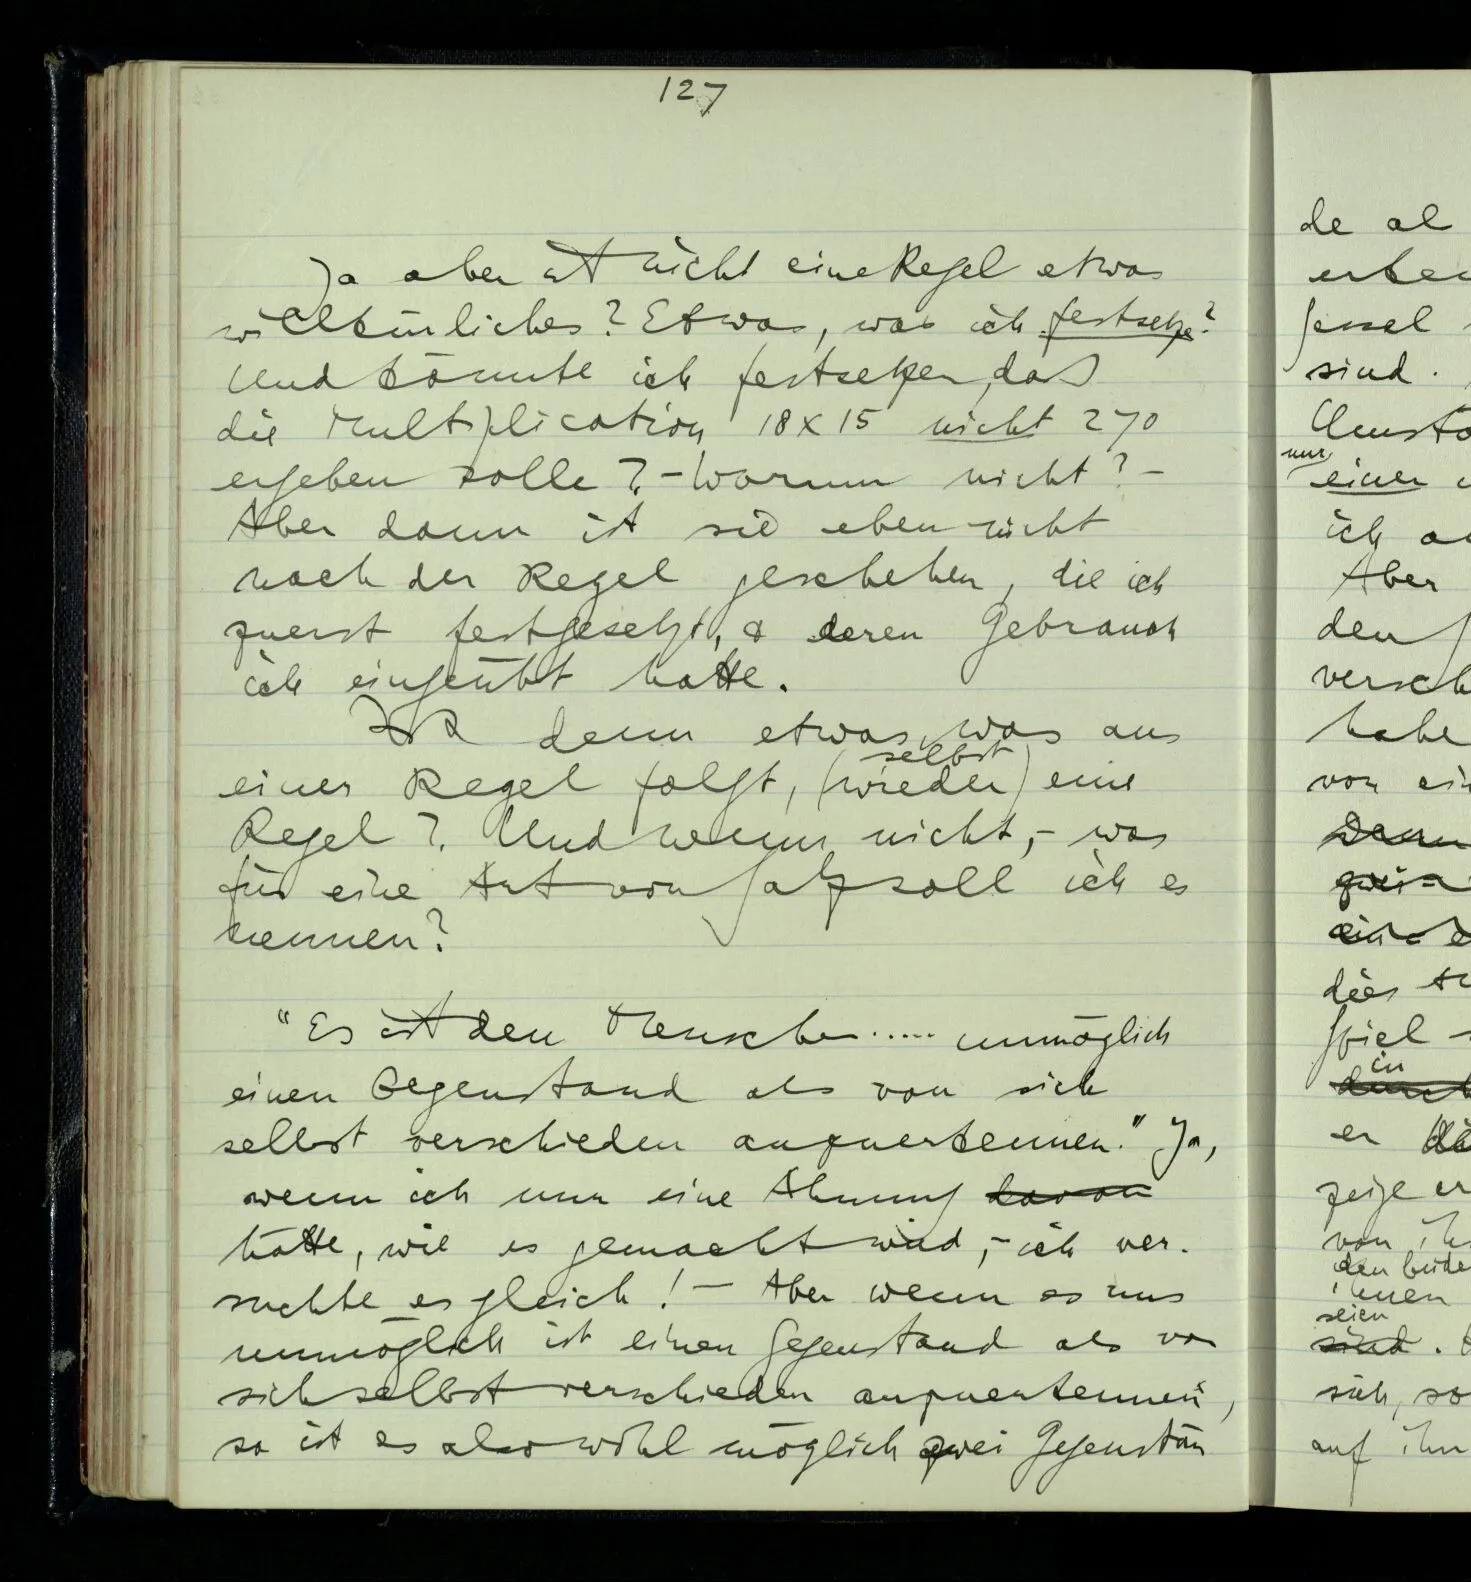 127
Ja aber ist nicht eine Regel etwas
willkürliches? Etwas, was ich festsetze?
Und könnte ich festsetzen, daß
die Multiplication 18 x 15 nicht 270
ergeben solle? – Warum nicht? –
Aber dann ist sie eben nicht
nach der Regel geschehen, die ich
zuerst festgesetzt, & deren Gebrauch
ich eingeübt hatte.
Ist denn etwas, was aus
selbst
einer Regel folgt, (wieder) eine
Regel? Und wenn nicht, – was
für eine Art von Satz soll ich es
nennen?
"Es ist den Menschen ..... unmöglich
einen Gegenstand als von sich
selbst verschieden anzuerkennen." Ja,
wenn ich nur eine Ahnung davon
hätte, wie es gemacht wird, – ich ver-
suchte es gleich! – Aber wenn es uns
unmöglich ist einen Gegenstand als von
sich selbst verschieden anzuerkennen,
so ist es also wohl möglich zwei Gegenstän
de al
erken
Sessel
sind.
Umstä
nur
einen
ich an
Aber
den
versch
habe
von ein
Denn
zwei
ein
dies
Spiel
in
durch
er
zeige er
von ih
den beide
ihnen
seien
sind.
sich, so
auf ihn